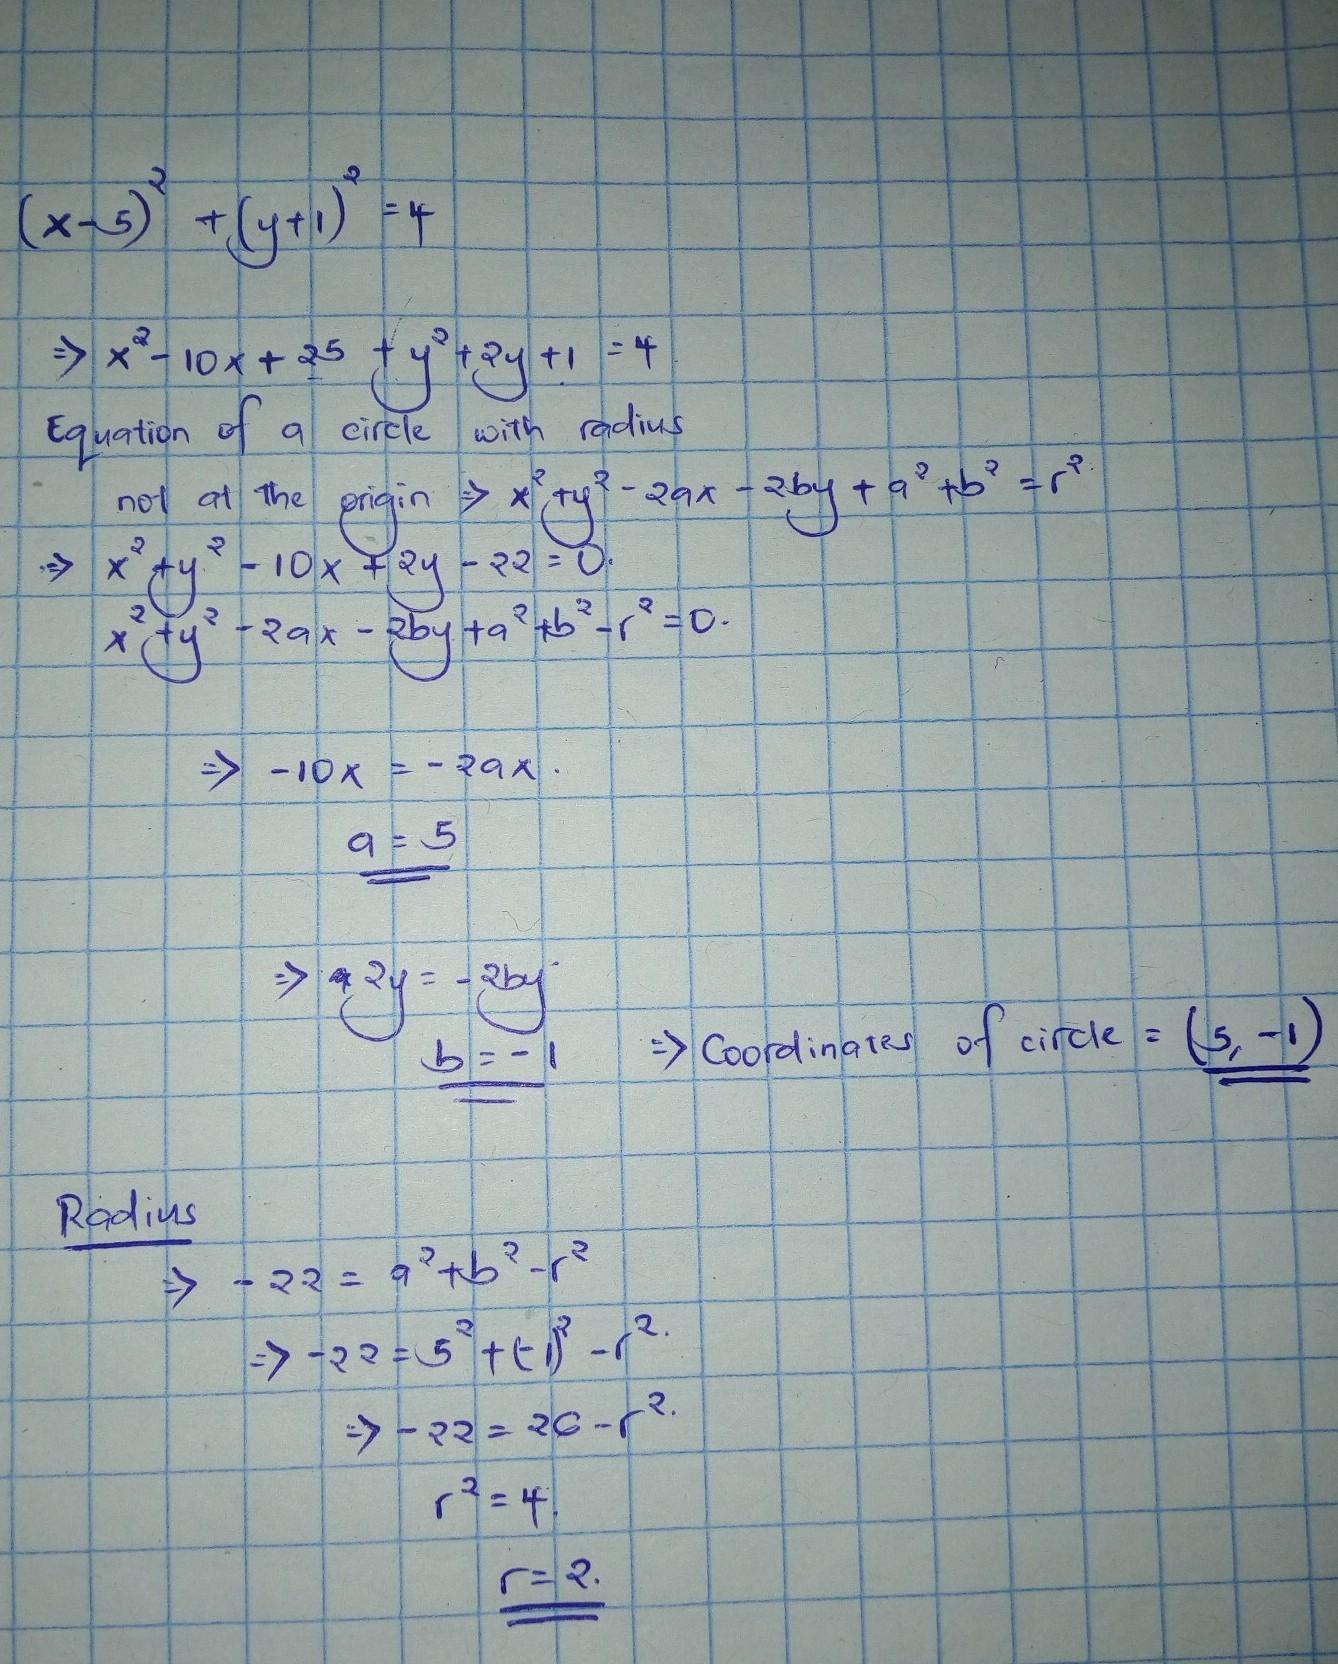 (x-5)² + (y+1)² = 4
⇒ x² - 10x + 25 + y² + 2y + 1 = 4
Equation of a circle with radius
not at the origin ⇒ x² + y² - 2ax - 2by + a² + b² = r².
⇒ x² + y² - 10x + 2y - 22 = 0.
x² + y² - 2ax - 2by + a² + b² - r² = 0.
⇒ -10x = -2ax.
a = 5
⇒ 2y = -2by
b = -1 ⇒ Coordinates of circle = (5, -1)
Radius
⇒ -22 = a² + b² - r²
⇒ -22 = 5² + (-1)² - r².
⇒ -22 = 26 - r².
r² = 4.
r = 2.